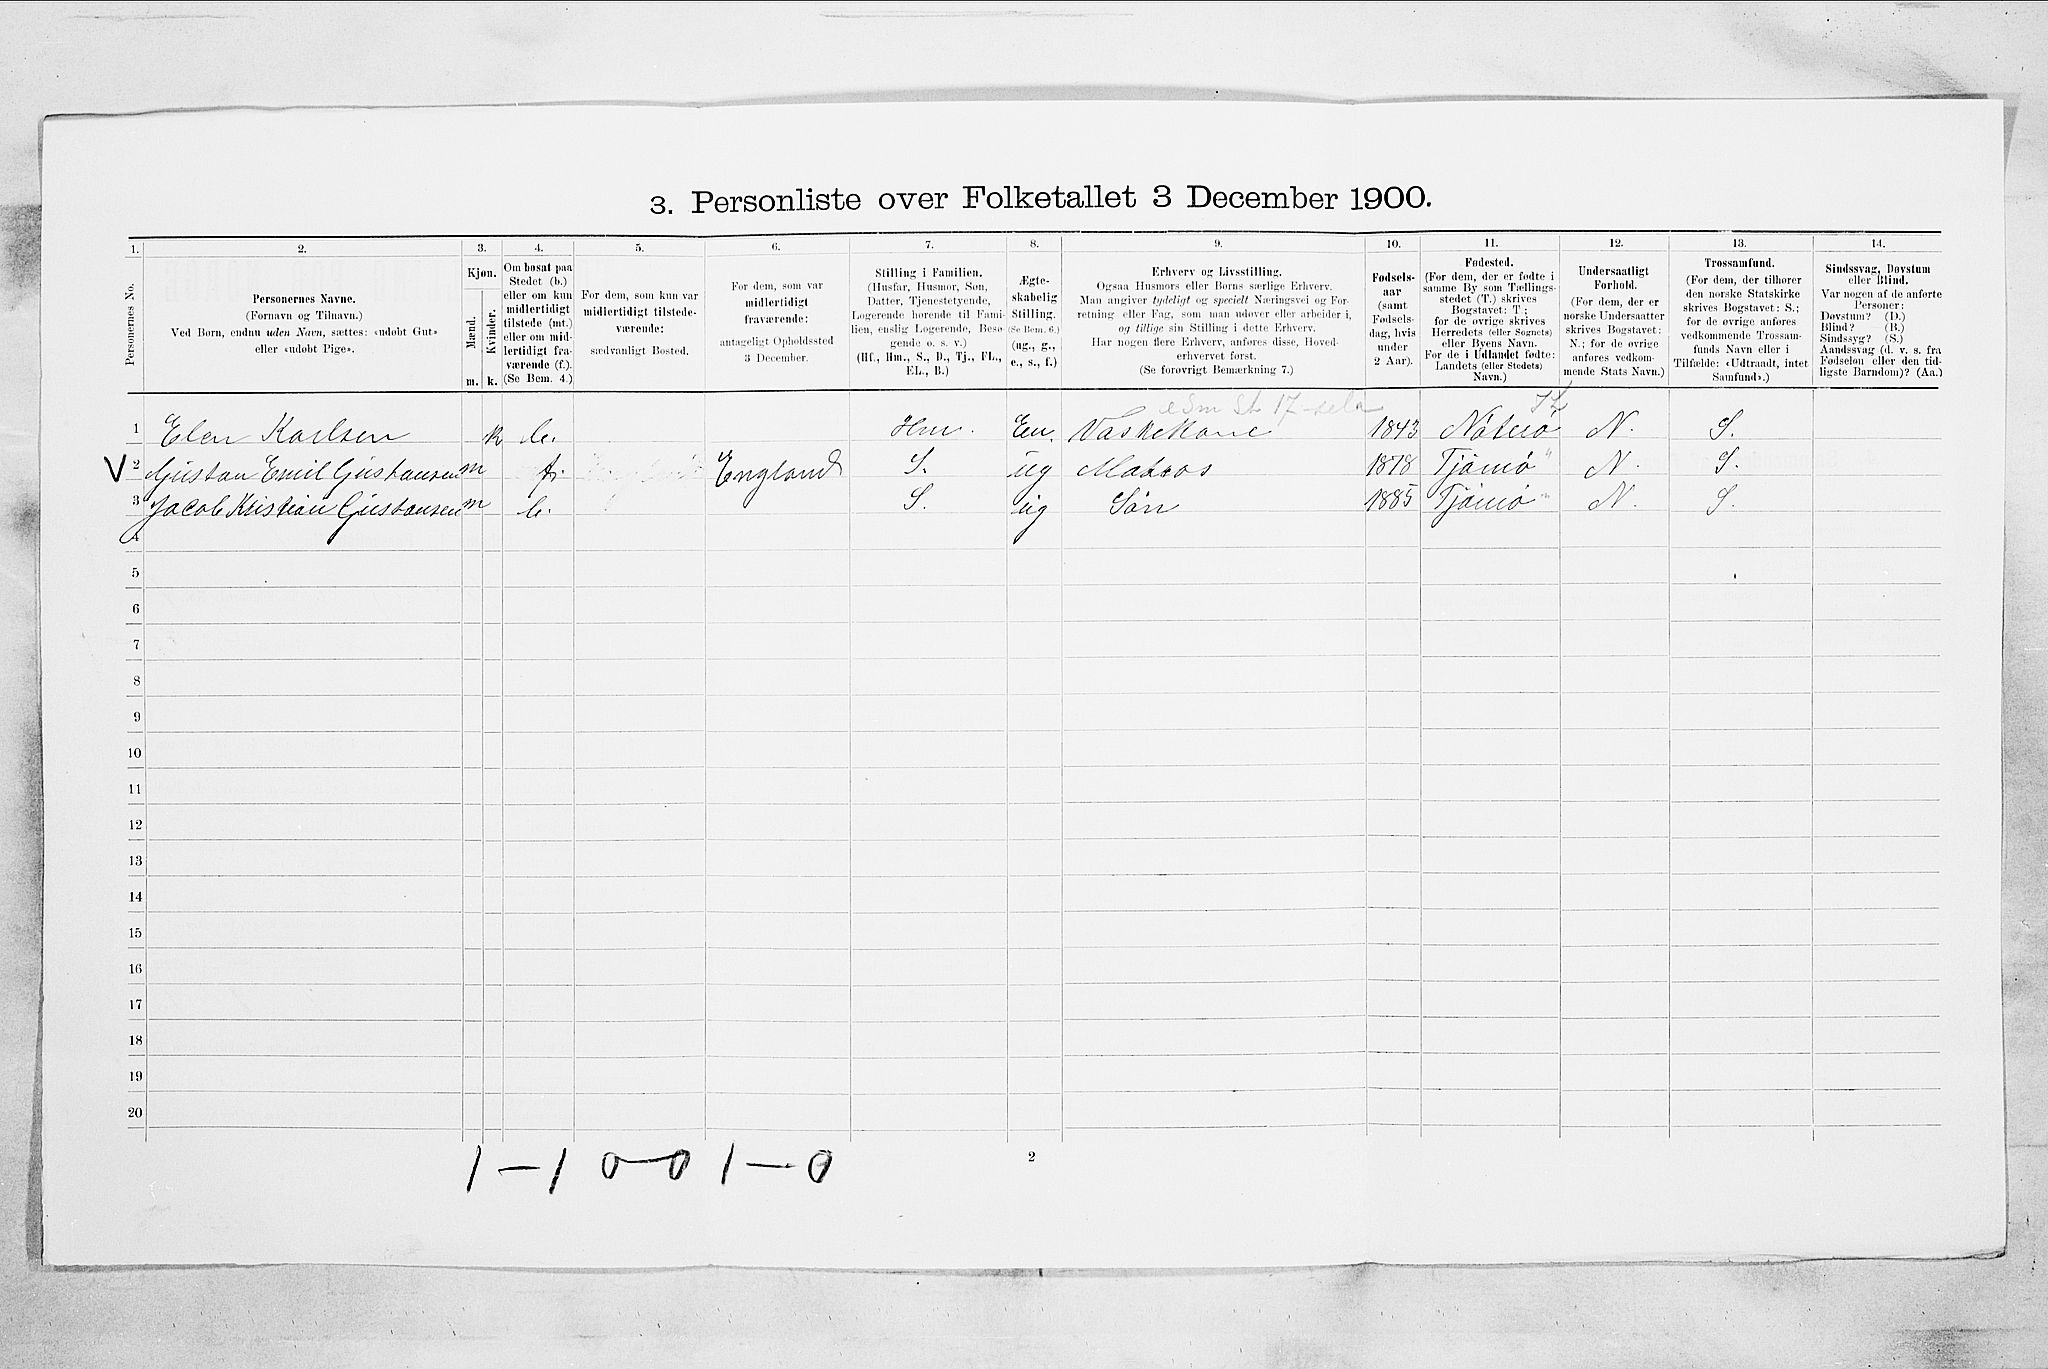 3. Personliste over Folketallet 3 December 1900.
1. 2. 3. 4. 5. 6. 7. 8. 9. 10. 11. 12. 13. 14.
Personernes No.
Personernes Navne.
(Fornavn og Tilnavn.)
Ved Børn, endnu uden Navn, sættes: «udøbt Gut»
eller «udøbt Pige».
Kjøn.
Mænd.
Kvinder.
m. k.
Om bosat paa
Stedet (b.)
eller om kun
midlertidigt
tilstede (mt.)
eller om mid-
lertidigt fra-
værende (f.).
(Se Bem. 4.)
For dem, som kun var
midlertidigt tilstede-
værende:
sædvanligt Bosted.
For dem, som var
midlertidigt
fraværende:
antageligt Opholdssted
3 December.
Stilling i Familien.
(Husfar, Husmor, Søn,
Datter, Tjenestetyende,
Logerende hørende til Fami-
lien, enslig Logerende, Besø-
gende o. s. v.)
(Hf., Hm., S., D., Tj., FL.,
EL., B.)
Ægte-
skabelig
Stilling.
(Se Bem. 6.)
(ug., g.,
e., s., f.)
Erhverv og Livsstilling.
Ogsaa Husmors eller Børns særlige Erhverv.
Man angiver tydeligt og specielt Næringsvei og For-
retning eller Fag, som man udøver eller arbeider i,
og tillige sin Stilling i dette Erhverv.
Har nogen flere Erhverv, anføres disse, Hoved-
erhvervet først.
(Se forøvrigt Bemærkning 7.)
Fødsels-
aar
(samt
Fødsels-
dag, hvis
under
2 Aar).
Fødested.
(For dem, der er fødte i
samme By som Tællings-
stedet (T.) skrives
Bogstavet: T.;
for de øvrige skrives
Herredets (eller Sognets)
eller Byens Navn.
For de i Udlandet fødte:
Landets (eller Stedets)
Navn.)
Undersaatligt
Forhold.
(For dem, der er
norske Undersaatter
skrives Bogstavet:
N.; for de øvrige
anføres vedkom-
mende Stats Navn.)
Trossamfund.
(For dem, der tilhører
den norske Statskirke
skrives Bogstavet: S.;
for de øvrige anføres
vedkommende Trossam-
funds Navn eller i
Tilfælde: «Udtraadt, intet
Samfund».)
Sindssvag, Døvstum
eller Blind.
Var nogen af de anførte
Personer:
Døvstum? (D.)
Blind? (B.)
Sindssyg? (S.)
Aandssvag (d. v. s. fra
Fødselen eller den tid-
ligste Barndom)? (Aa.)
1 Elen Karlsen k b. Hm. En. Vaskekone 1843 Nøterø N. S.
V 2 Gustav Emil Gustavsen m f. England S. ug Matros 1878 Tjømø " N. S.
3 Jacob Kristian Gustavsen m b. S. ug Søn 1885 Tjømø " N. S.
4
5
6
7
8
9
10
11
12
13
14
15
16
17
18
19
20
1–1 0–0 1–0
2